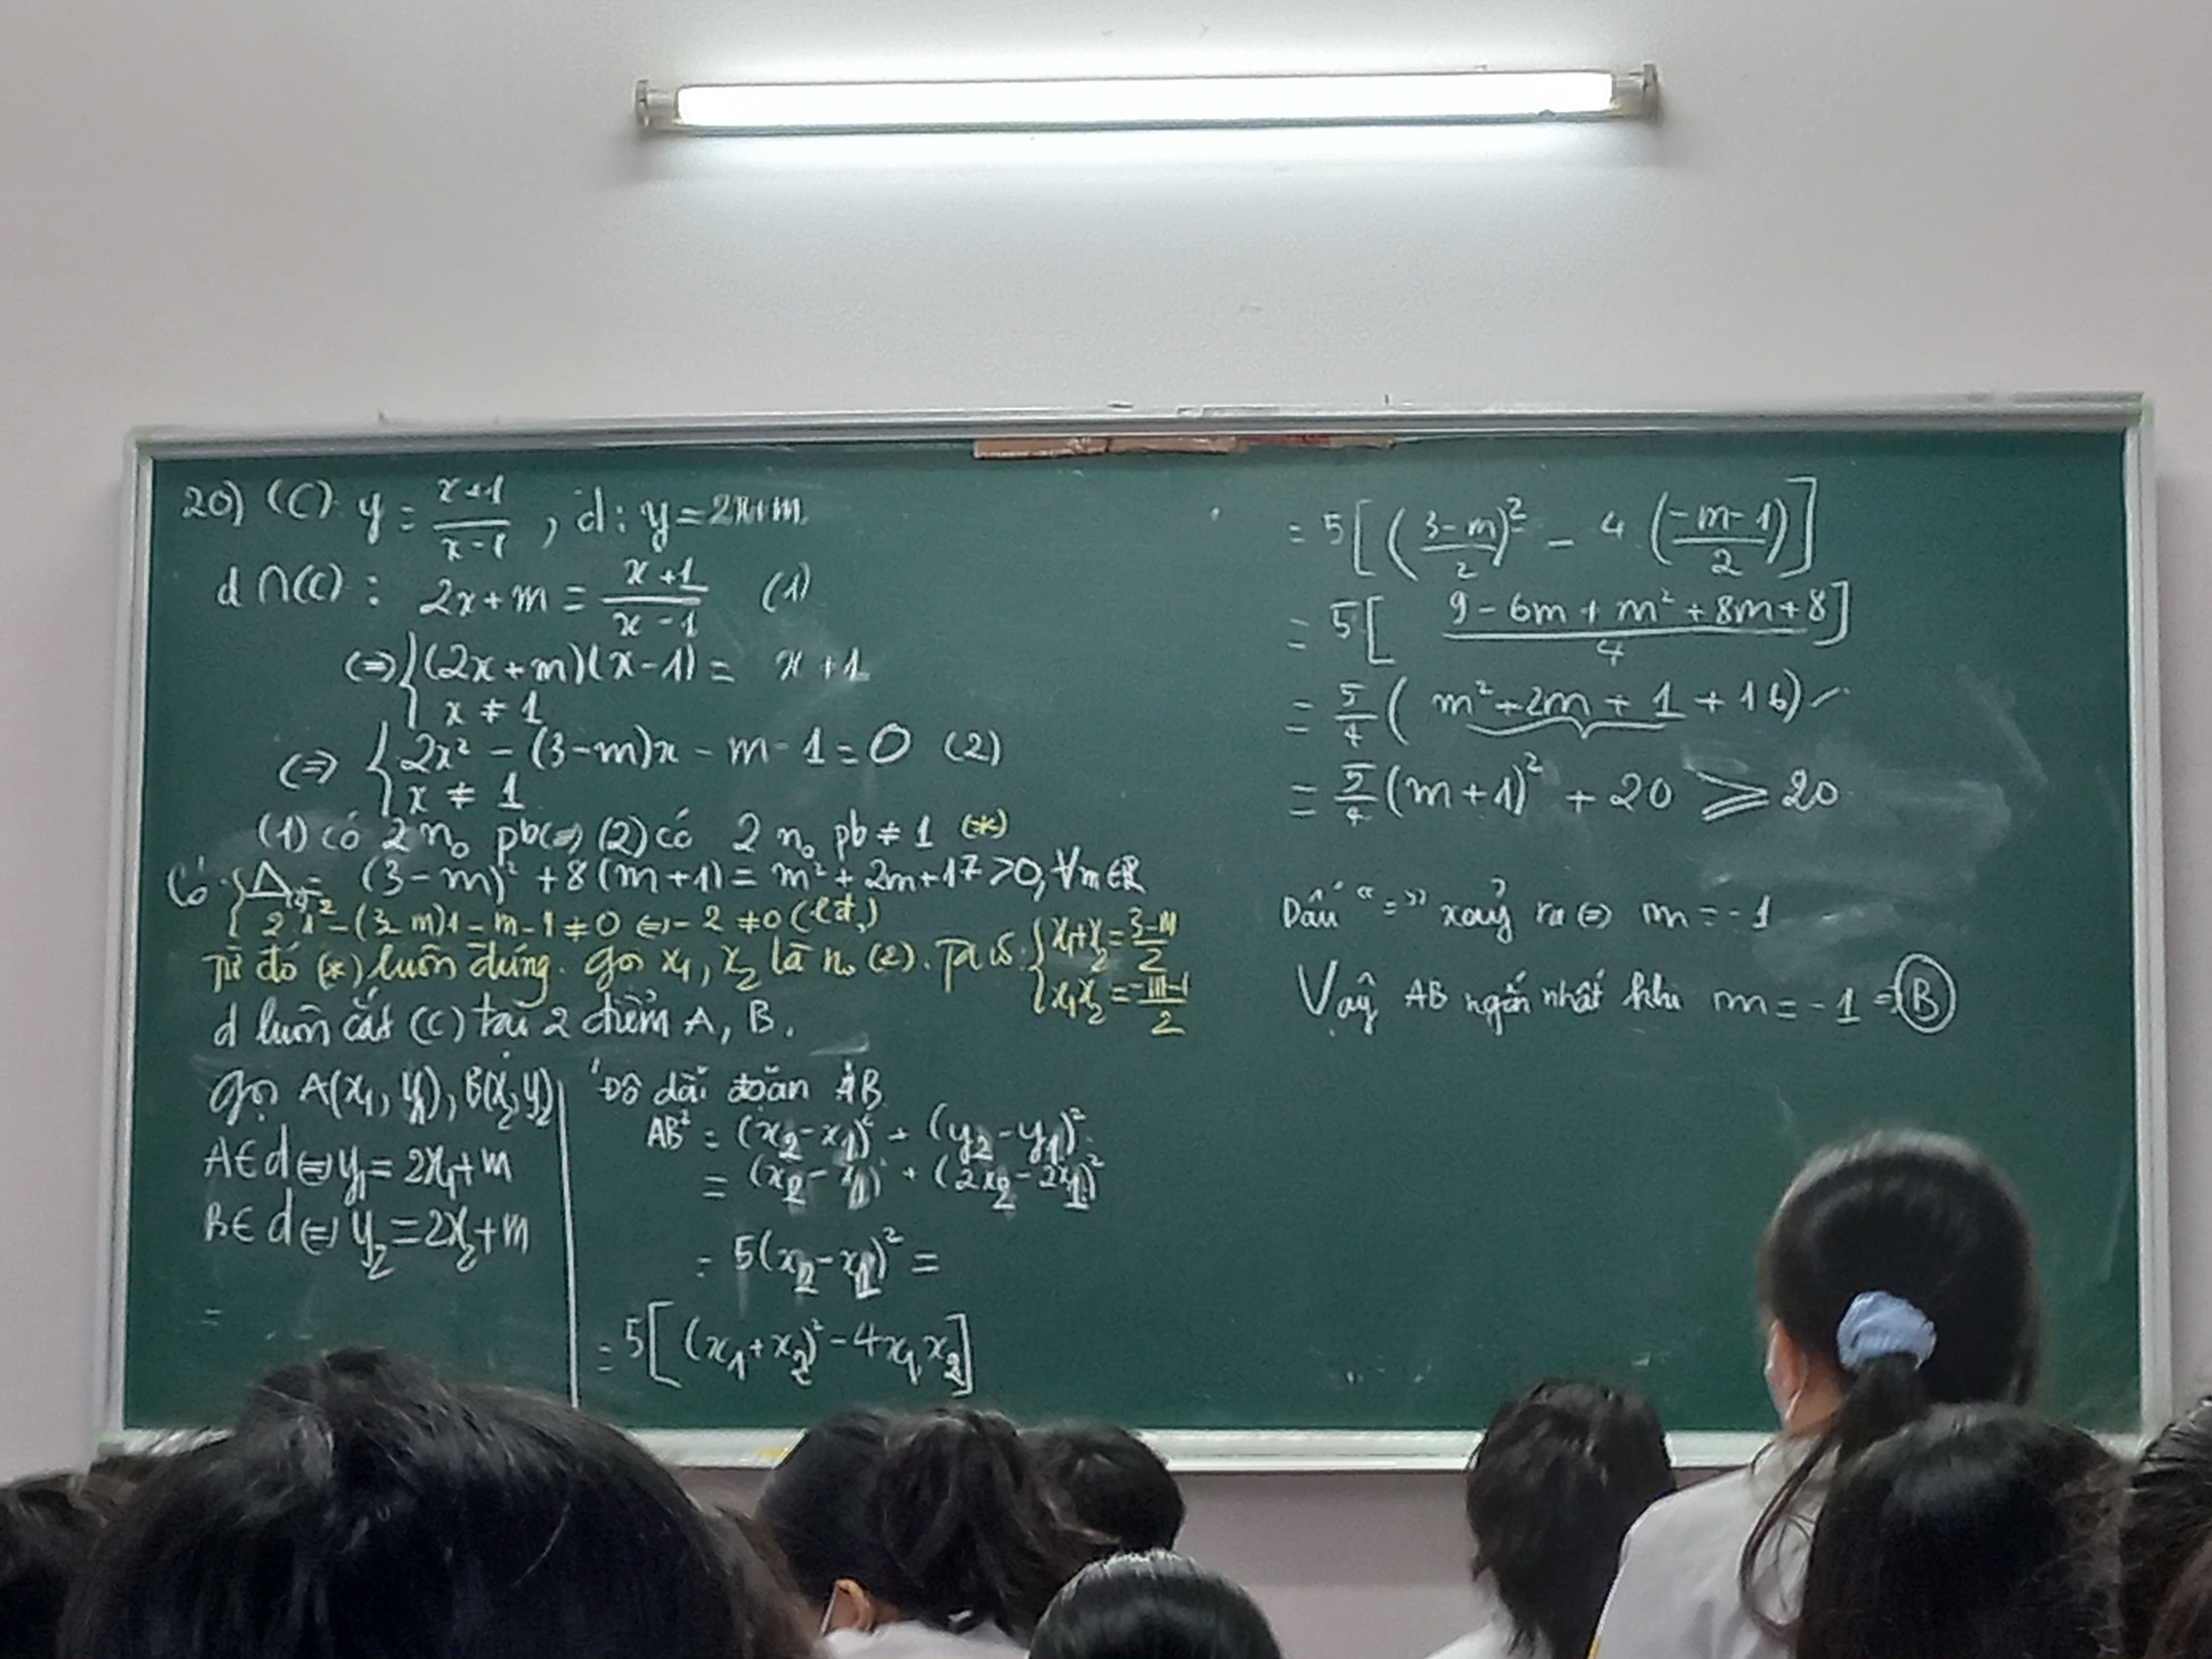 20) (C): y = \frac{x+1}{x-1}, d: y = 2x+m
d ∩ (C): 2x+m = \frac{x+1}{x-1} (1)
(=) { (2x+m)(x-1) = x+1
x ≠ 1
(=) { 2x² - (3-m)x - m - 1 = 0 (2)
x ≠ 1
(1) có 2 n₀ pb (=) (2) có 2 n₀ pb ≠ 1 (*)
Có: { Δ = (3-m)² + 8(m+1) = m² + 2m + 17 > 0, ∀m ∈ R
2.1² - (3-m)1 - m - 1 ≠ 0 (=) -2 ≠ 0 (lđ)
Từ đó (*) luôn đúng. Gọi x₁, x₂ là n₀ (2). Ta có: { x₁+x₂ = \frac{3-m}{2}
x₁x₂ = \frac{-m-1}{2}
d luôn cắt (C) tại 2 điểm A, B.
Gọi A(x₁, y₁), B(x₂, y₂)
A ∈ d (=) y₁ = 2x₁+m
B ∈ d (=) y₂ = 2x₂+m
=
Độ dài đoạn AB
AB² = (x₂-x₁)² + (y₂-y₁)²
= (x₂-x₁)² + (2x₂-2x₁)²
= 5(x₂-x₁)² =
= 5[(x₁+x₂)² - 4x₁x₂]
= 5[(\frac{3-m}{2})² - 4.(\frac{-m-1}{2})]
= 5[\frac{9-6m+m²+8m+8}{4}]
= \frac{5}{4}(m²+2m+1+16)
= \frac{5}{4}(m+1)² + 20 ≥ 20
Dấu "=" xảy ra (=) m = -1
Vậy AB ngắn nhất khi m = -1 => B